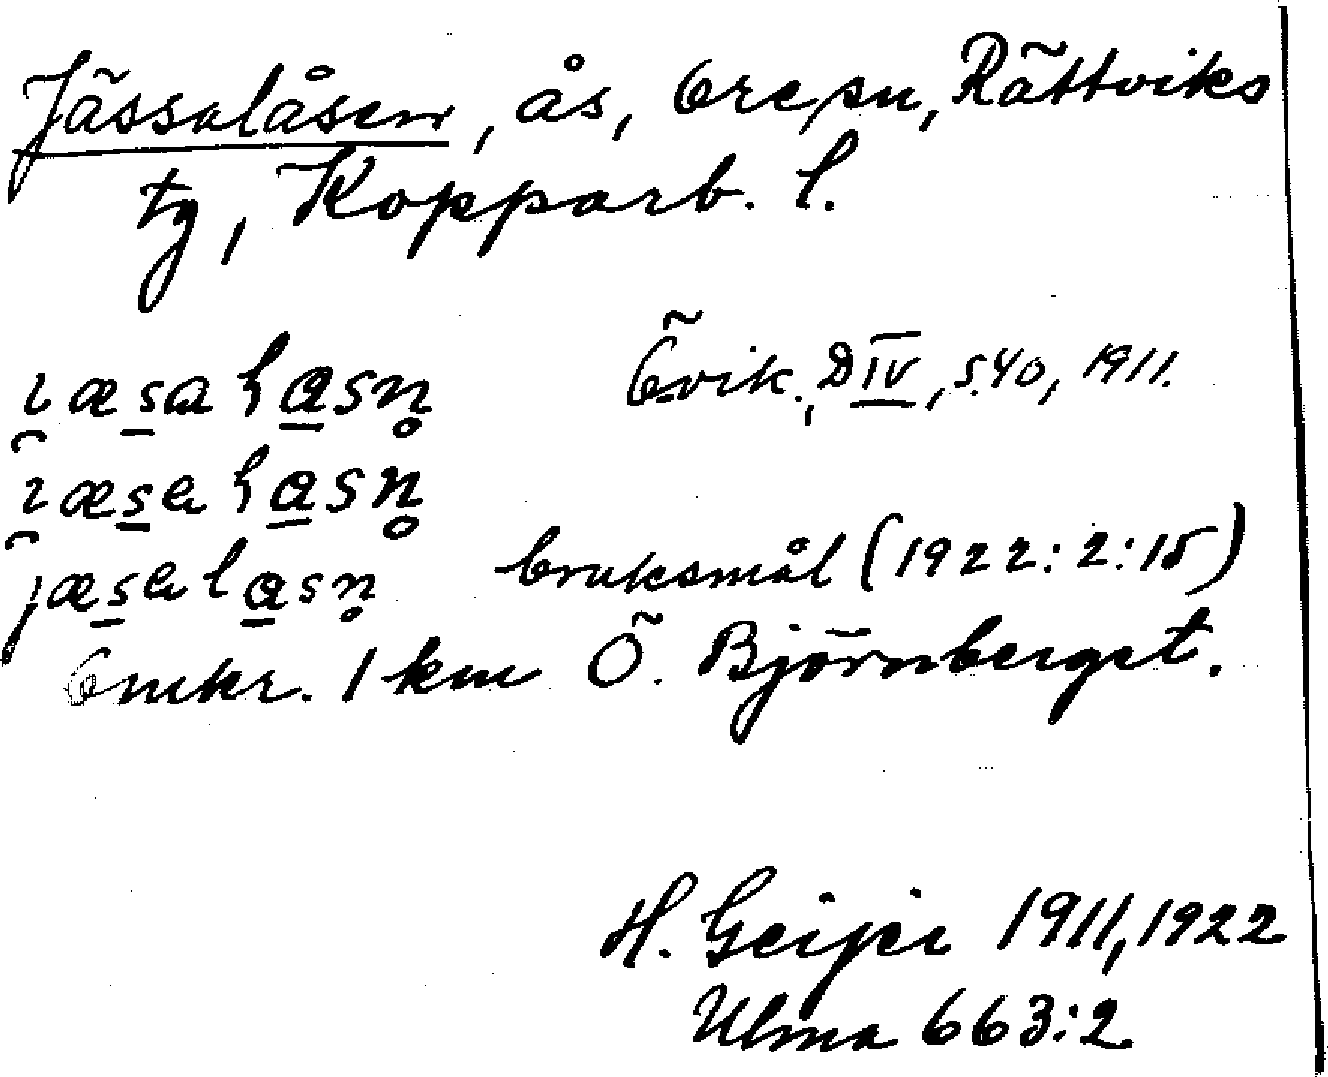 Jässalåsen, ås, Ore sn, Rättviks
tg, Kopparb. l.
Övik, D IV, s. 40, 1911.
bruksmål (1922:2:15)
Omkr. 1 km Ö. Björnberget.
H. Geijer 1911, 1922
Ulma 663:2